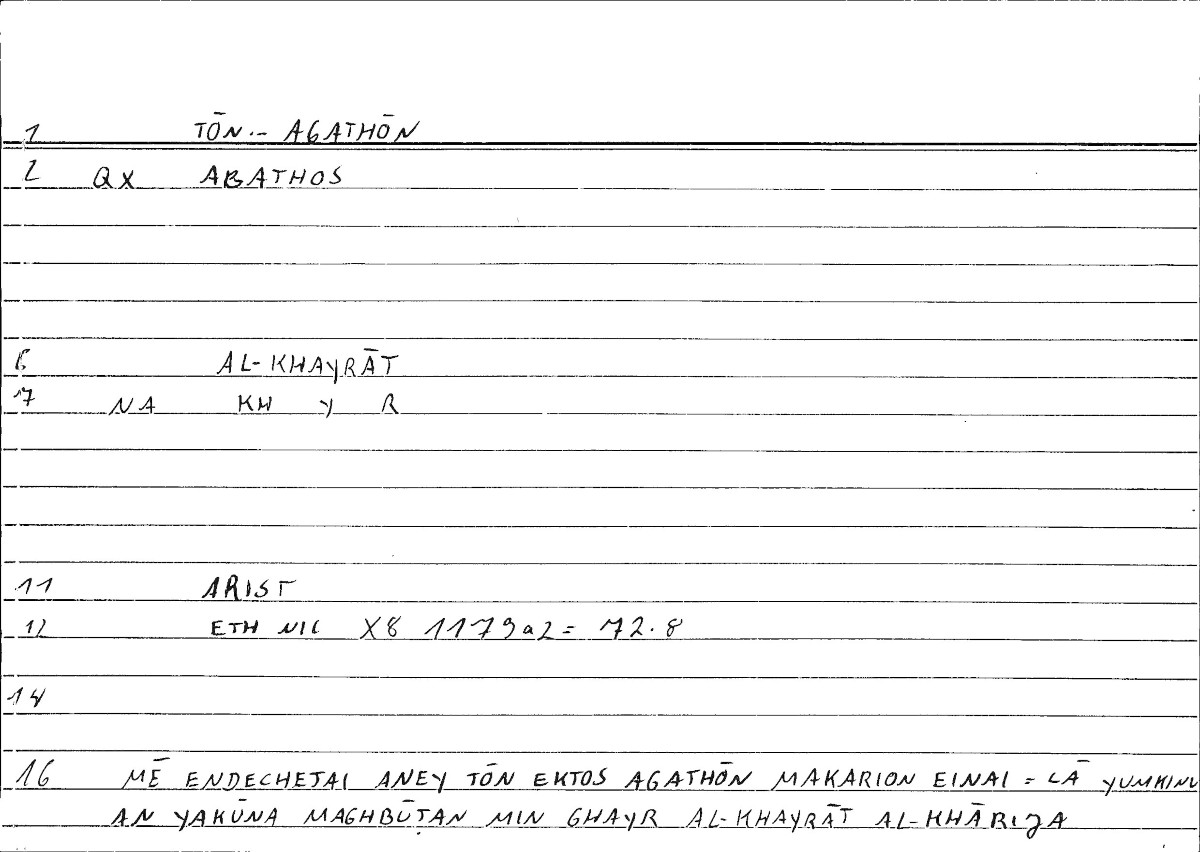 1 TŌN.- AGATHŌN
2 QX AGATHOS
6 AL-KHAYRĀT
7 NA KH Y R
11 ARIST
12 ETH NIC X8 1179a2 = 72.8
14
16 MĒ ENDECHETAI ANEY TŌN EKTOS AGATHŌN MAKARION EINAI = LĀ YUMKINU
AN YAKŪNA MAGHBŪṬAN MIN GHAYR AL-KHAYRĀT AL-KHĀRIJA